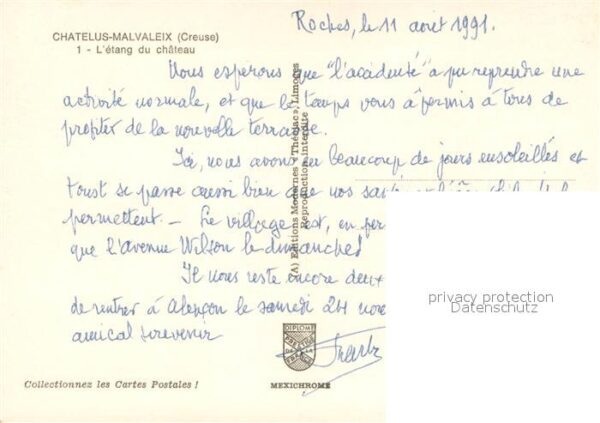 Roches, le 11 août 1991.
CHATELUS-MALVALEIX (Creuse)
1 - L'étang du château
Nous espérons que "l'accidenté" a pu reprendre une
activité normale, et que le temps vous a permis à tous de
profiter de la nouvelle terrasse.
Ici, nous avons eu beaucoup de jours ensoleillés et
tout se passe aussi bien que nos
permettent. - Le village est, en
que l'avenue Wilson le dimanche!
Il nous reste encore deux
de rentrer à Alençon le samedi 24
amical souvenir
(A) Editions Modernes « Théojac », Limoges
Reproduction interdite
DIPLOME
PRESTIGE
DE LA
FRANCE
Collectionnez les Cartes Postales !
MEXICHROME
privacy protection
Datenschutz